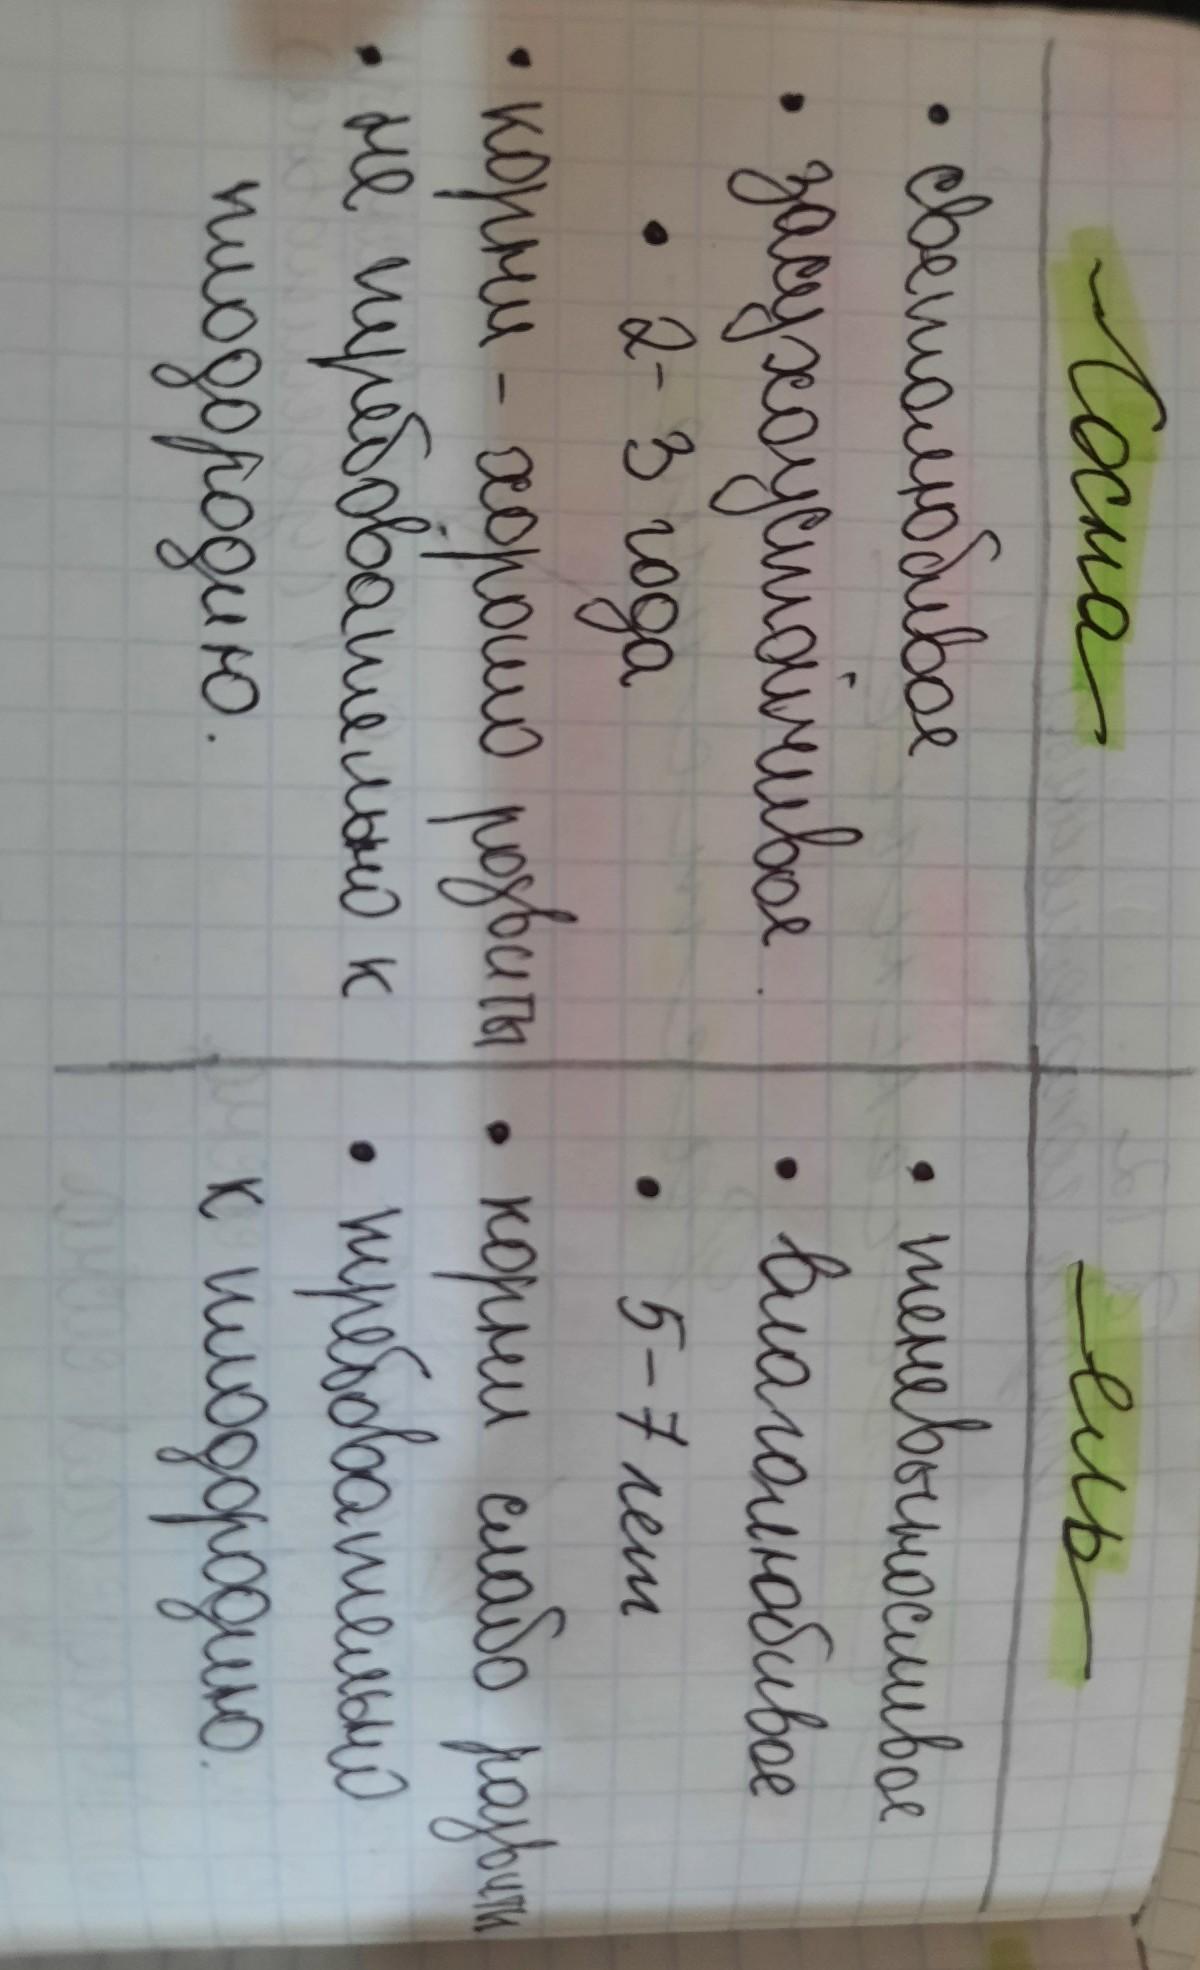 Сосна
ель
• светолюбивое
• теневыносливое
• засухоустойчивое.
• влаголюбивое
• 2-3 года
• 5-7 лет
• корни - хорошо розвиты
• корни слабо развиты
• не требовательно к
• требовательно
плодородию.
к плодородию.